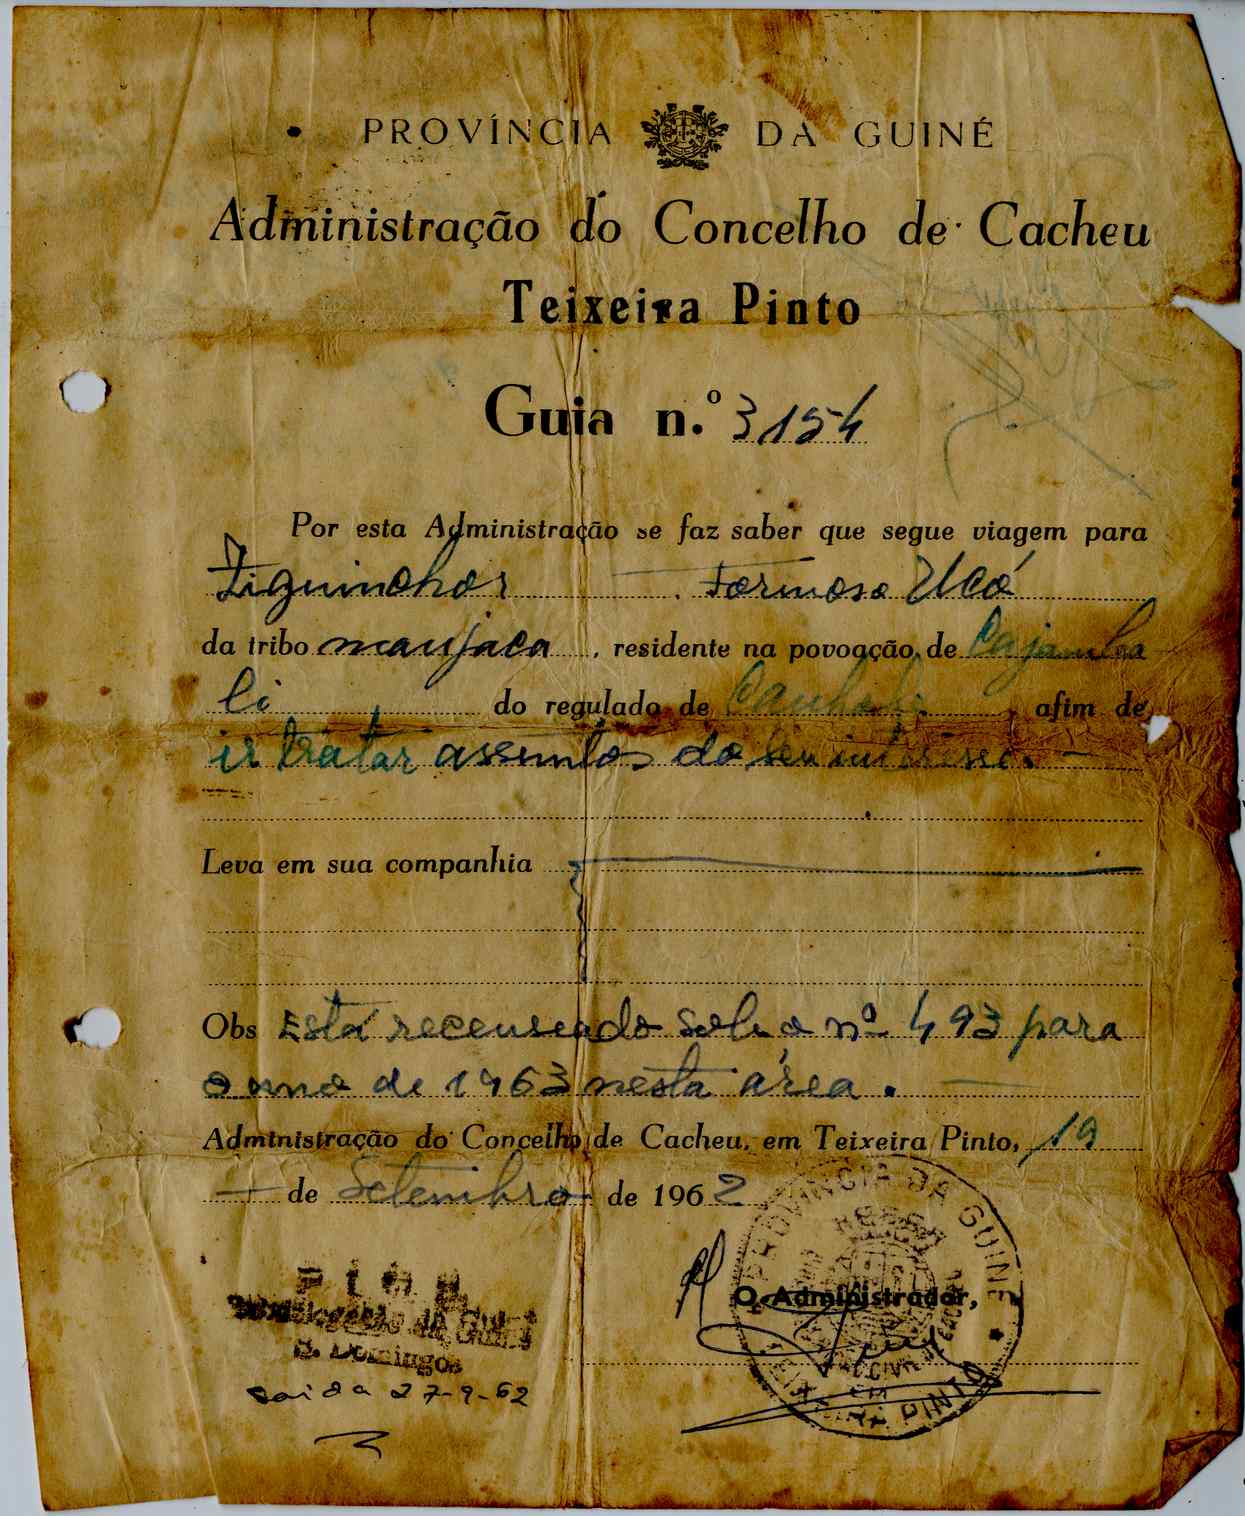 PROVÍNCIA DA GUINÉ
Administração do Concelho de Cacheu
Teixeira Pinto
Guia n.º 3154
Por esta Administração se faz saber que segue viagem para
Ziguinchor Formoso Ucó
da tribo manjaca, residente na povoação de Cajamba
li do regulado de afim de
ir tratar assuntos do seu interesse.
Leva em sua companhia
Obs Está recenseado sob o nº 493 para
o ano de 1963 nesta área.
Administração do Concelho de Cacheu, em Teixeira Pinto, 19
de Setembro de 1962
PROVÍNCIA DA GUINÉ
O Administrador,
TEIXEIRA PINTO
P. I. D. E.
S. Domingos
Saida 27-9-62